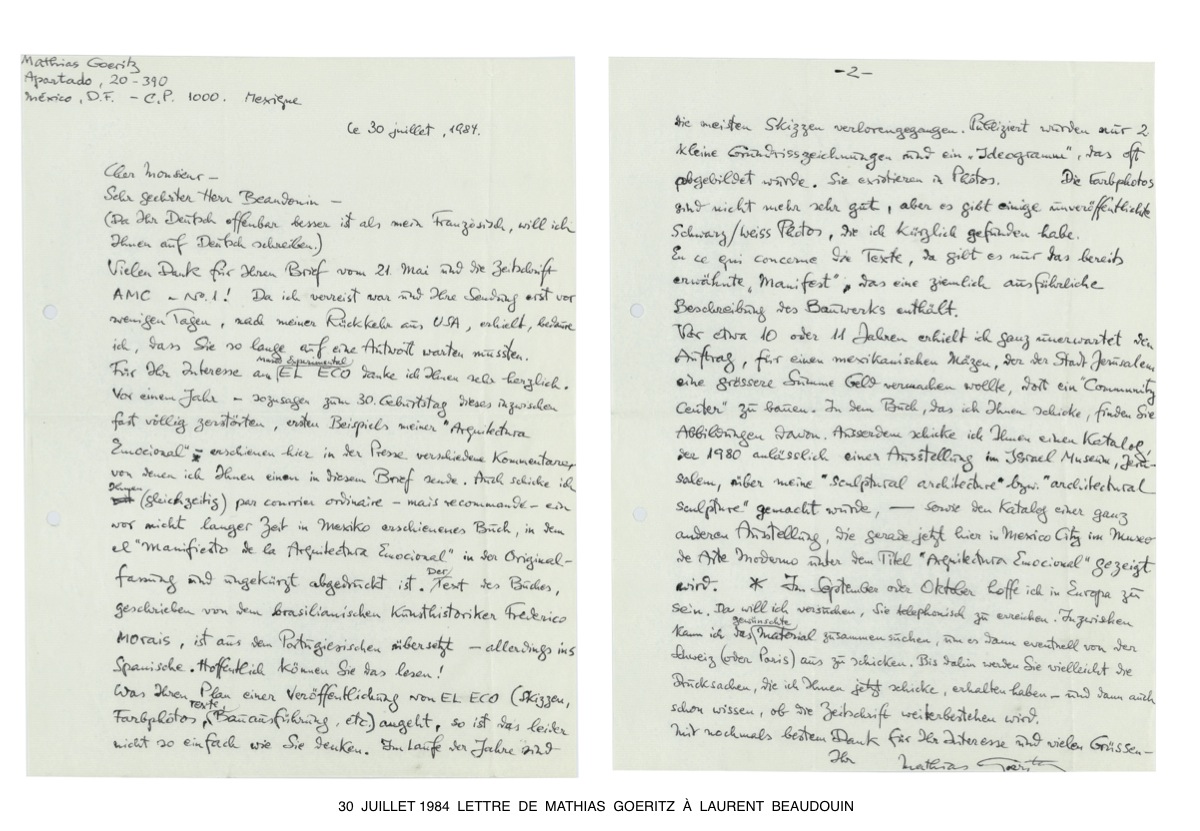 Mathias Goeritz
Apartado, 20-390
México, D.F. - C.P. 1000. Mexique
le 30 juillet, 1984.
Cher Monsieur -
Sehr geehrter Herr Beaudouin -
(Da Ihr Deutsch offenbar besser ist als mein Französisch, will ich
Ihnen auf Deutsch schreiben.)
Vielen Dank für Ihren Brief vom 21. Mai und die Zeitschrift
AMC - No. 1! Da ich verreist war und Ihre Sendung erst vor
wenigen Tagen, nach meiner Rückkehr aus USA, erhielt, bedaure
ich, dass Sie so lange auf eine Antwort warten mussten.
Für Ihr Interesse am Museo Experimental EL ECO danke ich Ihnen sehr herzlich.
Vor einem Jahr - sozusagen zum 30. Geburtstag dieses inzwischen
fast völlig zerstörten, ersten Beispiels meiner "Arquitectura
Emocional" - erschienen hier in der Presse verschiedene Kommentare,
von denen ich Ihnen einen in diesem Brief sende. Auch schicke ich
Ihnen (gleichzeitig) par courrier ordinaire - mais recommandé - ein
vor nicht langer Zeit in Mexiko erschienenes Buch, in dem
el "Manifiesto de la Arquitectura Emocional" in der Original-
fassung und ungekürzt abgedruckt ist. Der Text des Buches,
geschrieben von dem brasilianischen Kunsthistoriker Frederico
Morais, ist aus dem Portugiesischen übersetzt - allerdings ins
Spanische. Hoffentlich können Sie das lesen!
Was Ihren Plan einer Veröffentlichung von EL ECO (Skizzen,
Farbphotos, Texte, Bauausführung, etc.) angeht, so ist das leider
nicht so einfach wie Sie denken. Im Laufe der Jahre sind
-2-
die meisten Skizzen verlorengegangen. Publiziert wurden nur 2
kleine Grundrisszeichnungen und ein "Ideogramm", das oft
abgebildet wurde. Sie existieren in Photos. Die Farbphotos
sind nicht mehr sehr gut, aber es gibt einige unveröffentlichte
Schwarz/weiss Photos, die ich kürzlich gefunden habe.
En ce qui concerne die Texte, da gibt es nur das bereits
erwähnte "Manifest", das eine ziemlich ausführliche
Beschreibung des Bauwerks enthält.
Vor etwa 10 oder 11 Jahren erhielt ich ganz unerwartet den
Auftrag, für einen mexikanischen Mäzen, der der Stadt Jerusalem
eine grössere Summe Geld vermachen wollte, dort ein "Community
Center" zu bauen. In dem Buch, das ich Ihnen schicke, finden Sie
Abbildungen davon. Ausserdem schicke ich Ihnen einen Katalog,
der 1980 anlässlich einer Ausstellung im Israel Museum, Jeru-
salem, über meine "sculptural architecture" bzw. "architectural
sculpture" gemacht wurde, — sowie den Katalog einer ganz
anderen Ausstellung, die gerade jetzt hier in Mexico City im Museo
de Arte Moderno unter dem Titel "Arquitectura Emocional" gezeigt
wird. * Im September oder Oktober hoffe ich in Europa zu
sein. Da will ich versuchen, Sie telephonisch zu erreichen. Inzwischen
kann ich das gewünschte Material zusammensuchen, um es dann eventuell von der
Schweiz (oder Paris) aus zu schicken. Bis dahin werden Sie vielleicht die
Drucksachen, die ich Ihnen jetzt schicke, erhalten haben - und dann auch
schon wissen, ob die Zeitschrift weiterbestehen wird.
Mit nochmals bestem Dank für Ihr Interesse und vielen Grüssen -
Ihr Mathias Goeritz
30 JUILLET 1984 LETTRE DE MATHIAS GOERITZ À LAURENT BEAUDOUIN